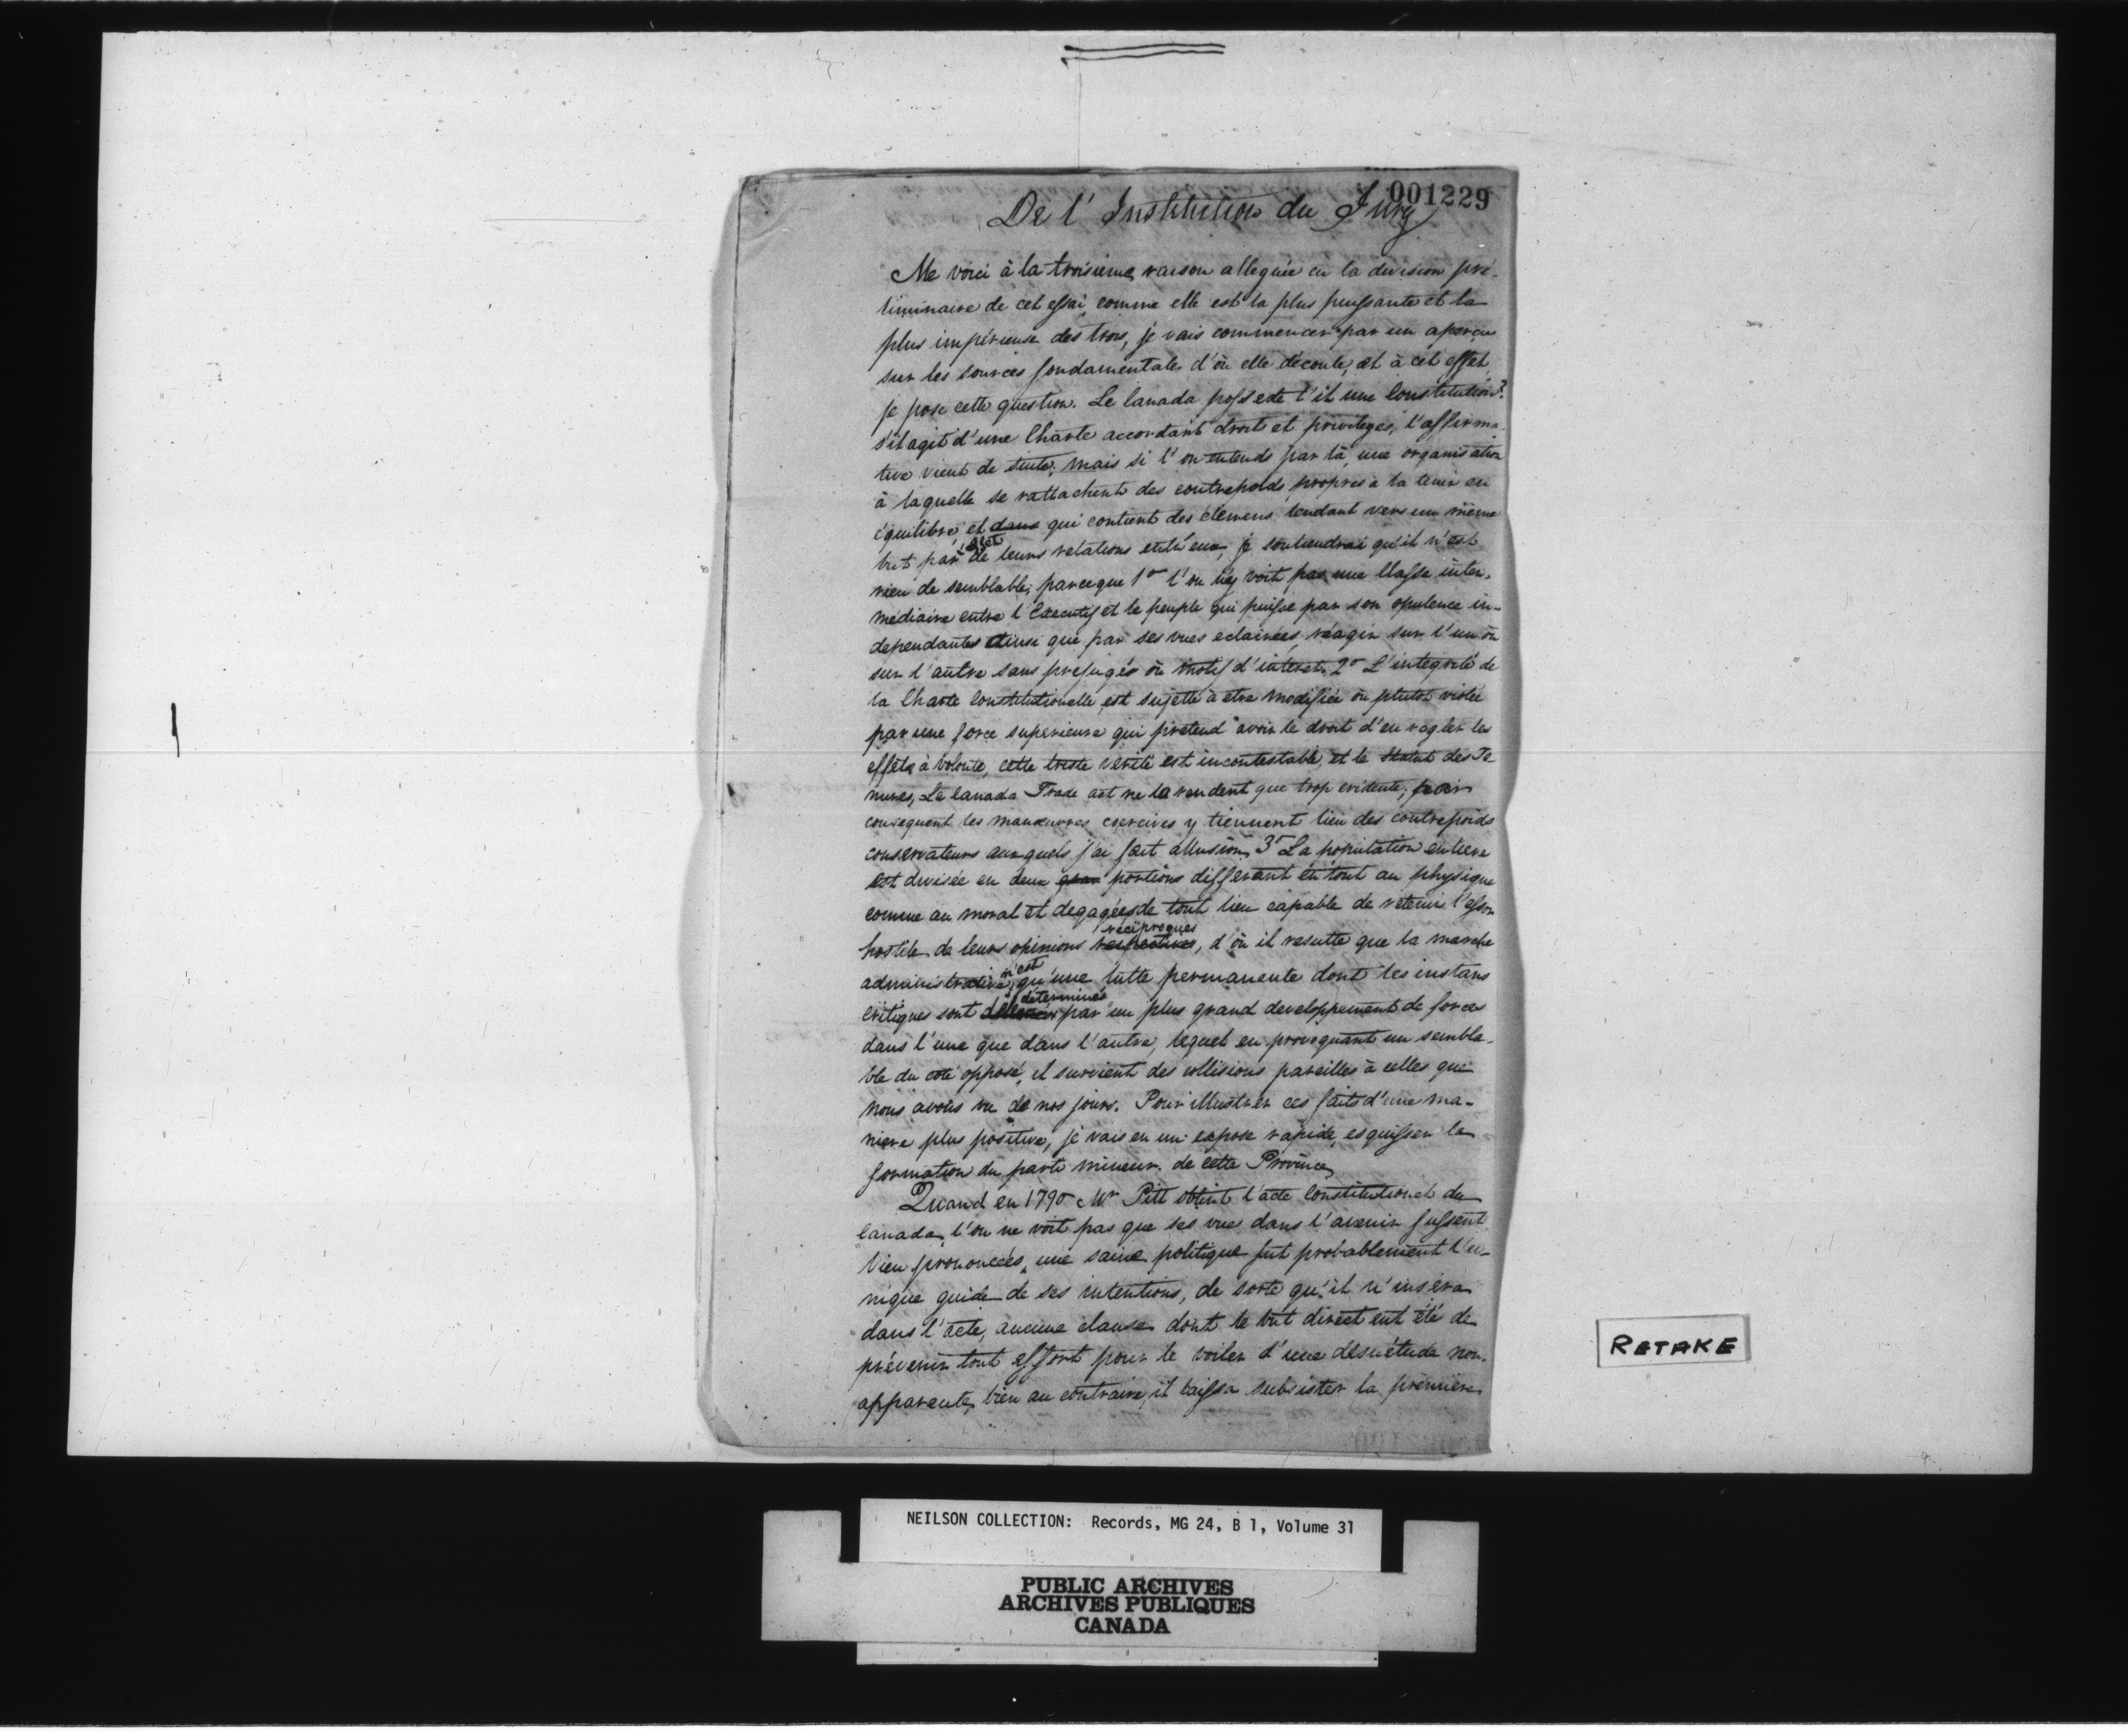 001229
De l'Institution du Jury
Me voici à la troisieme raison alleguée en la division pré-
liminaire de cet essai, comme elle est la plus puissante et la
plus impérieuse des trois, je vais commencer par un aperçu
sur les sources fondamentales d'où elle découle, et à cet effet
je pose cette question. Le Canada possede t'il une Constitution?
s'il agit d'une Charte accordant droits et privileges, l'affirma-
tive vient de suite; mais si l'on entends par là, une organisation
à laquelle se rattachent des contrepoids propres à la tenir en
équilibre, et dans qui contient des élémens tendant vers un même
but par l'effet de leurs relations entr'eux, je soutiendrai qu'il n'est
rien de semblable; parceque 1º l'on n'y voit pas une Classe inter-
médiaire entre l'Executif et le peuple qui puisse par son opulence in-
dependantes ainsi que par ses vues eclairées, réagir sur l'un ou
sur l'autre sans prejugés ou motif d'interet. 2º L'integrité de
la Charte Constitutionelle est sujette à etre modifiée ou plutot violée
par une force superieure qui prétend avoir le droit d'en régler les
effets à volonté, cette triste verité est incontestable, et le Statut des Te
nures, Le Canada Trade act ne la rendent que trop evidente; par
consequent les manœuvres coercives y tiennent lieu des contrepoids
conservateurs auxquels j'ai fait allusion. 3º La population entiere
est divisée en deux portions differant en tout au physique
comme au moral et degagées de tout lien capable de retenir l'essor
hostile de leurs opinions respectives réciproques, d'où il resulte que la marche
administrative n'est qu'une lutte permanente dont les instans
critiques sont déterminés par un plus grand developpement de forces
dans l'une que dans l'autre, lequel en provoquant un sembla-
ble du coté opposé, il survient des collisions pareilles à celles que
nous avons vu de nos jours. Pour illustrer ces faits d'une ma-
niere plus positive, je vais en un exposé rapide, esquisser la
formation du parti mineur de cette Province
Quand en 1790 Mr Pitt obtint l'acte Constitutionel du
Canada, l'on ne voit pas que ses vues dans l'avenir fussent
bien prononcées, une saine politique fut probablement l'u-
nique guide de ses intentions, de sorte qu'il n'inséra
dans l'acte, aucune clause dont le but direct eut été de
prévenir tout effort pour le voiler d'une désuétude non-
apparente, bien au contraire, il laissa subsister la premiere
RETAKE
NEILSON COLLECTION: Records, MG 24, B 1, Volume 31
PUBLIC ARCHIVES
ARCHIVES PUBLIQUES
CANADA